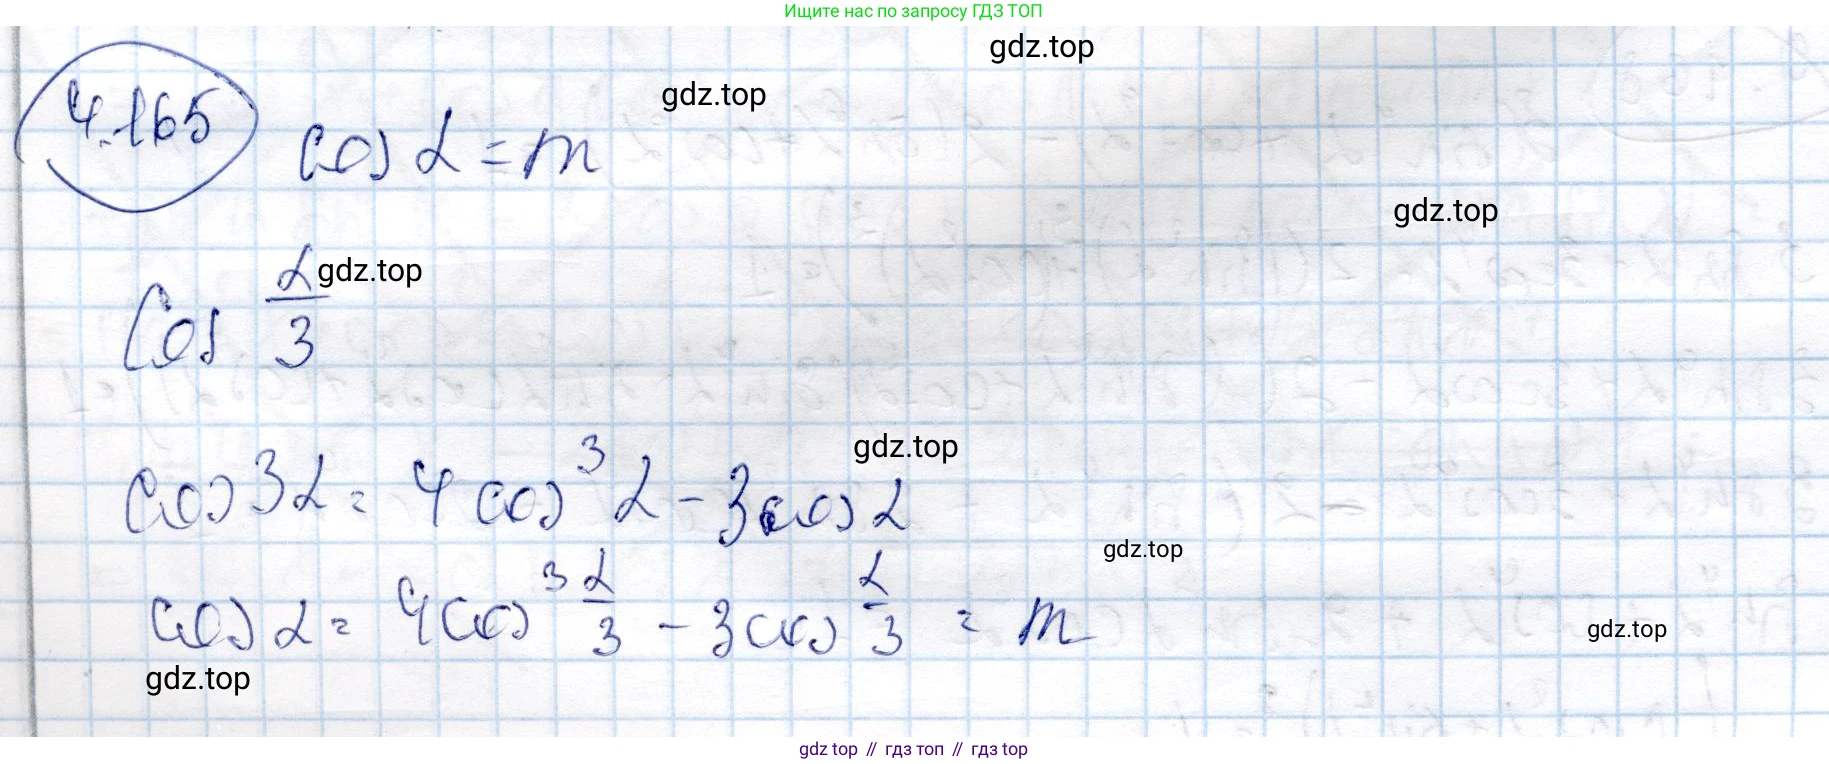 Ищите нас по запросу ГДЗ ТОП
gdz.top
gdz.top
4.165 cos α = m
gdz.top
cos α/3
gdz.top
gdz.top
cos 3α = 4 cos³ α - 3 cos α
gdz.top
cos α = 4 cos³ α/3 - 3 cos α/3 = m
gdz.top
gdz.top
gdz top // гдз топ // гдз top